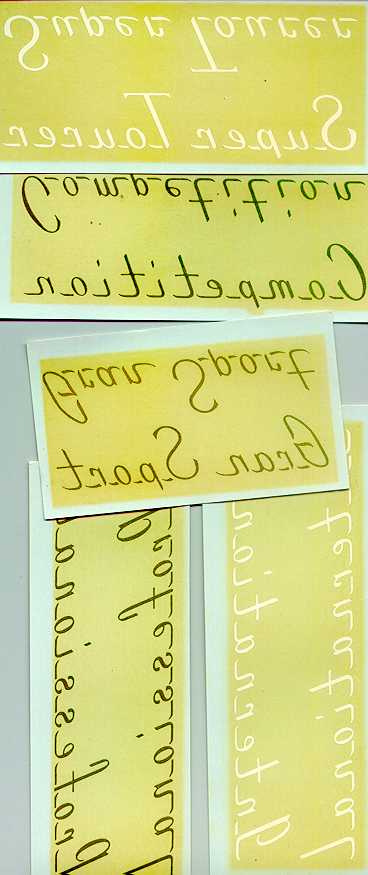 Super Tourer
Super Tourer
Competition
Competition
Gran Sport
Gran Sport
Professional
Professional
International
International